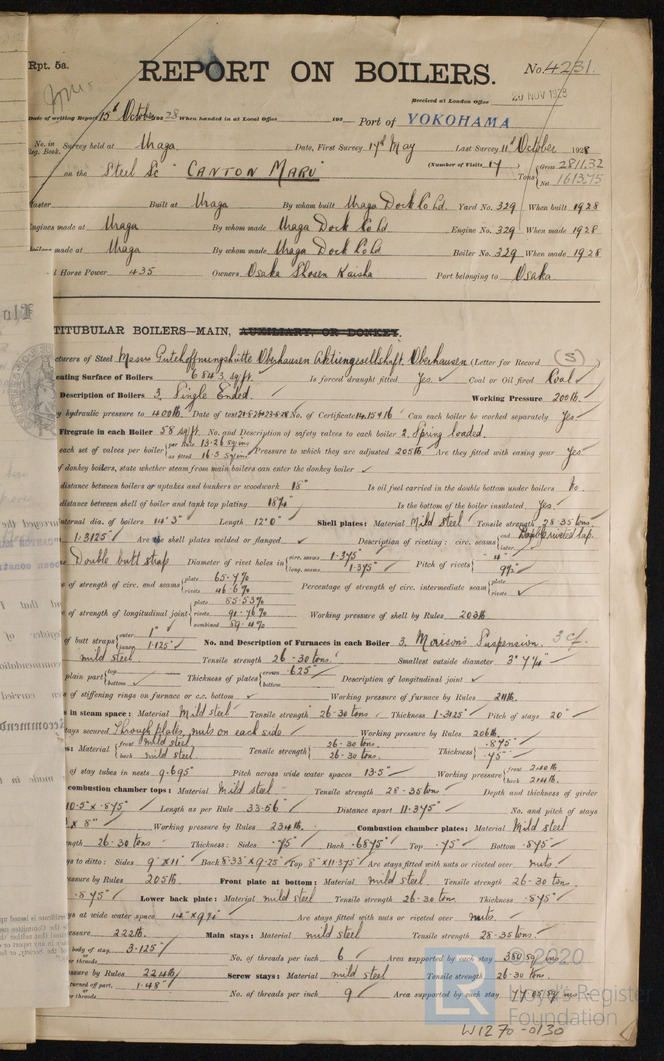 Rpt. 5a.
REPORT ON BOILERS.
No. 4231.
Received at London Office 20 NOV 1928
Date of writing Report 15th October 1928 When handed in at Local Office 192 Port of YOKOHAMA
No. in Reg. Book. Survey held at Uraga Date, First Survey 17th May Last Survey 11th October 1928
(Number of Visits 17) Gross 2811.32
on the Steel Sc "CANTON MARU" Tons Net 1613.75
Master Built at Uraga By whom built Uraga Dock Co Ld Yard No. 329 When built 1928
Engines made at Uraga By whom made Uraga Dock Co Ld Engine No. 329 When made 1928
Boilers made at Uraga By whom made Uraga Dock Co Ld Boiler No. 329 When made 1928
Horse Power 435 Owners Osaka Shosen Kaisha Port belonging to Osaka
TITUBULAR BOILERS—MAIN, AUXILIARY, OR DONKEY.
cturers of Steel Messrs Gutehoffnungshütte Oberhausen Aktiengesellschaft. Oberhausen (Letter for Record (S))
eating Surface of Boilers 6843 sq ft. Is forced draught fitted Yes. Coal or Oil fired Coal
Description of Boilers 3. Single Ended. Working Pressure 200 lb.
y hydraulic pressure to 400 lb. Date of test No. of Certificate Can each boiler be worked separately Yes
Firegrate in each Boiler 58 sq ft. No. and Description of safety valves to each boiler 2. Spring loaded.
each set of valves per boiler per Rule 13.26 sq ins as fitted 16.5 sq ins Pressure to which they are adjusted 205 lb Are they fitted with easing gear Yes
of donkey boilers, state whether steam from main boilers can enter the donkey boiler ✓
distance between boilers or uptakes and bunkers or woodwork 18" Is oil fuel carried in the double bottom under boilers No.
distance between shell of boiler and tank top plating Is the bottom of the boiler insulated Yes.
nternal dia. of boilers 14' 3" Length 12' 0" Shell plates: Material Mild steel Tensile strength 28-35 tons.
1.3125 Are the shell plates welded or flanged ✓ Description of riveting: circ. seams end inter.
Double butt strap Diameter of rivet holes in circ. seams 1.375" long. seams 1.375" Pitch of rivets
e of strength of circ. end seams plate 65.7% rivets 46.6% Percentage of strength of circ. intermediate seam plate rivets ✓
e of strength of longitudinal joint plate rivets 91.76% combined Working pressure of shell by Rules 203 lb
of butt straps outer 1" inner 1.125 No. and Description of Furnaces in each Boiler 3. Morison's Suspension. 3 Cf.
mild steel Tensile strength 26-30 tons. Smallest outside diameter
plain part top bottom Thickness of plates crown .625" bottom Description of longitudinal joint ✓
of stiffening rings on furnace or c.c. bottom ✓ Working pressure of furnace by Rules
s in steam space: Material Mild steel Tensile strength 26-30 tons Thickness 1.3125 Pitch of stays 20"
ays secured Through plates, nuts on each side Working pressure by Rules 206 lb.
s: Material front mild steel back mild steel Tensile strength 26-30 tons. 26-30 tons. Thickness .875" .75"
of stay tubes in nests 9.695" Pitch across wide water spaces 13.5" Working pressure front back
combustion chamber tops: Material Mild steel Tensile strength 28-35 tons Depth and thickness of girder
10.5" x .875" Length as per Rule 33.56" Distance apart 11.375" No. and pitch of stays
x 8" Working pressure by Rules 234 lb. Combustion chamber plates: Material Mild steel
ngth 26-30 tons Thickness: Sides .75" Back .6875" Top .75" Bottom .875"
ys to ditto: Sides 9" x 11" Back 8.33 x 9.25" Top 8" x 11.375" Are stays fitted with nuts or riveted over nuts.
essure by Rules 205 lb. Front plate at bottom: Material mild steel Tensile strength 26-30 tons.
.875" Lower back plate: Material mild steel Tensile strength 26-30 tons Thickness .875"
ys at wide water space Are stays fitted with nuts or riveted over nuts.
essure 222 lb. Main stays: Material mild steel Tensile strength 28-35 tons.
body of stay 3.125" No. of threads per inch 6 Area supported by each stay 380 sq ins
r threads
essure by Rules 224 lb Screw stays: Material mild steel Tensile strength 26-30 tons.
turned off part 1.48" No. of threads per inch 9 Area supported by each stay
or threads
© 2020
LR
Lloyd's Register
Foundation
W1270-0130